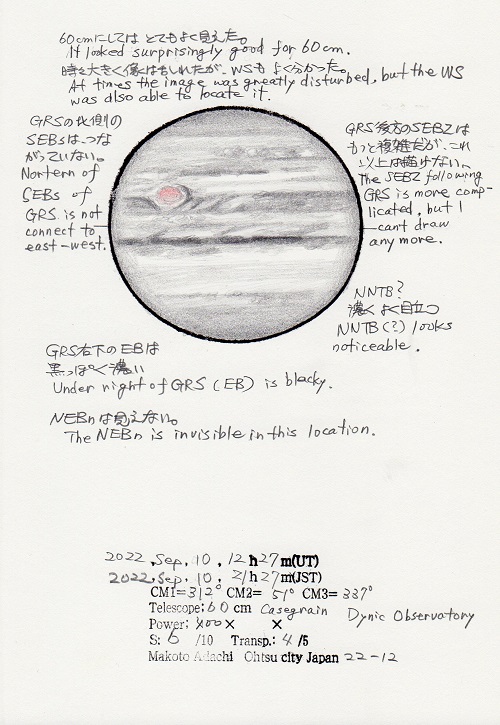 60cmにしては とてもよく見えた。
It looked surprisingly good for 60cm.
時々大きく像はもしれたが、WSもよく分かった。
At times the image was greatly disturbed, but the WS
was also able to locate it.
GRSの北側の
SEBsはつな
がっていない。
Nortern of
SEBs of
GRS is not
connect to
east-west.
GRS後方のSEBZは
もっと複雑だが、これ
以上は描けない。
The SEBZ following
GRS is more comp-
licated, but I
cant draw
any more.
NNTB?
濃くよく目立つ
NNTB(?) looks
noticeable.
GRS右下のEBは
黒っぽく濃い
Under right of GRS (EB) is blacky.
NEBnは見えない。
The NEBn is invisible in this location.
2022, Sep, 10, 12h27m(UT)
2022, Sep, 10, 21h27m(JST)
CM1=312° CM2= 51° CM3=337°
Telescope: 60 cm Casegrain Dynic Observatory
Power: 400× ×
S: 6 /10 Transp.: 4/5
Makoto Adachi Ohtsu city Japan 22-12